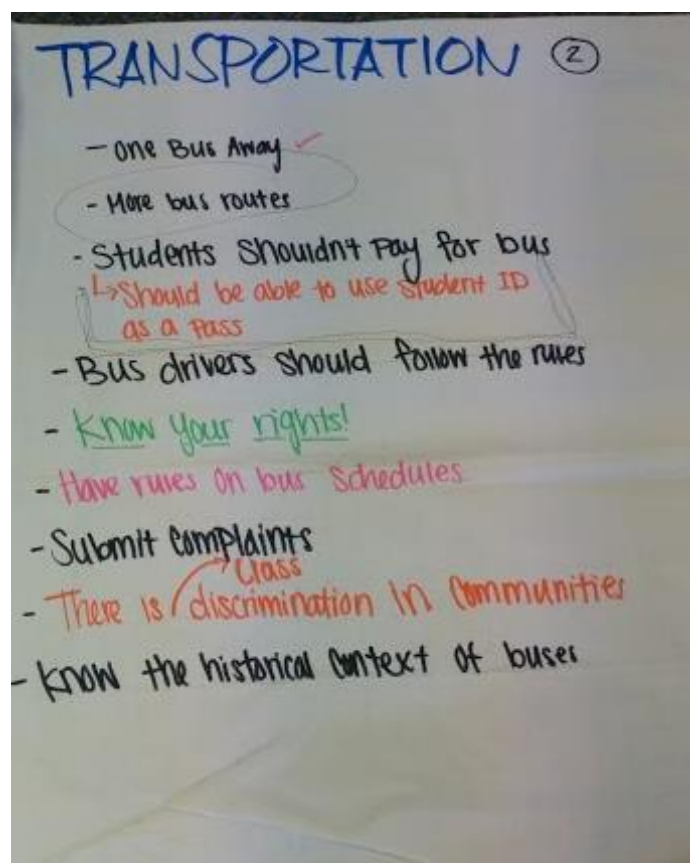 TRANSPORTATION ②
- One Bus Away ✓
- More bus routes
- Students Shouldnt Pay for bus
↳ Should be able to use Student ID
as a Pass
- Bus drivers should follow the rules
- Know Your rights!
- Have rules on bus Schedules
- Submit Complaints
Class
- There is discrimination In Communities
- Know the historical Context of buses